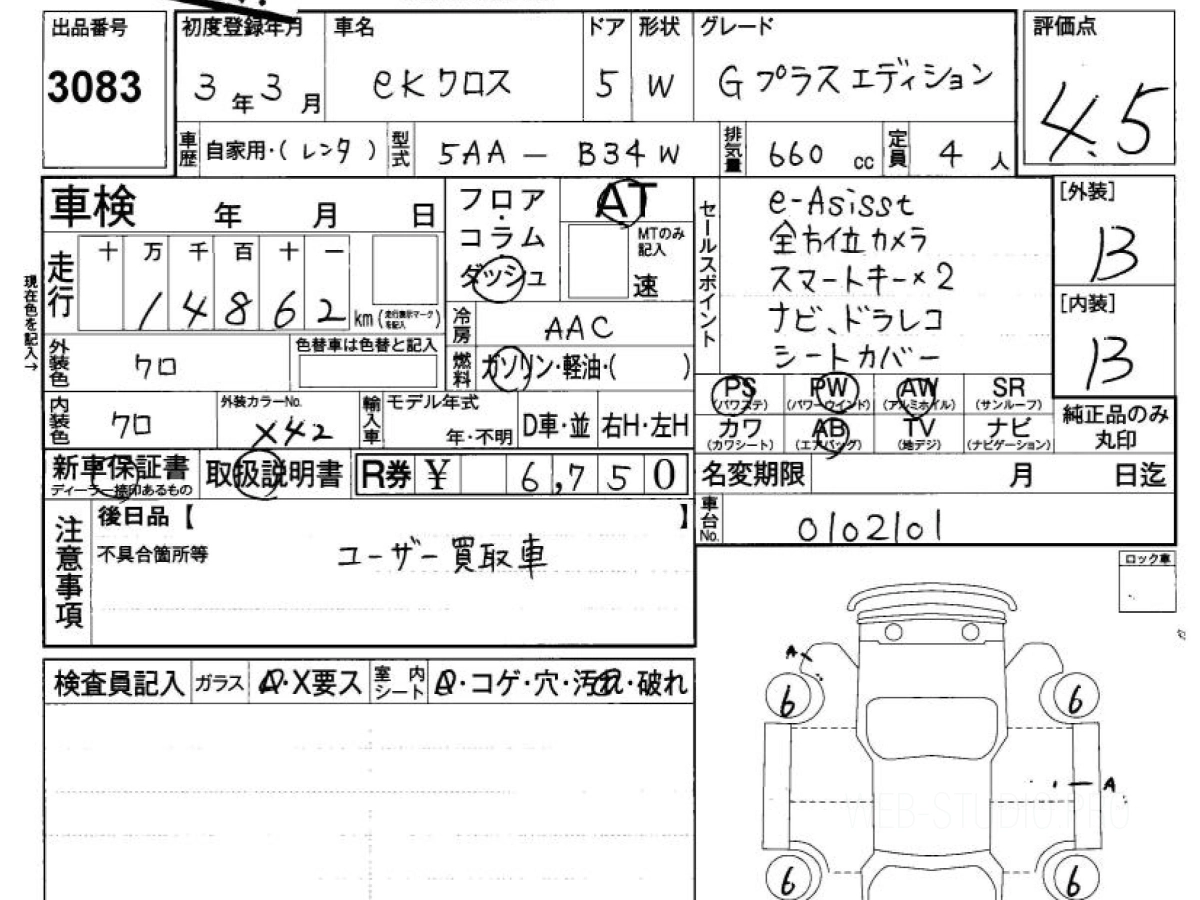 出品番号 初度登録年月 車名 ドア 形状 グレード 評価点
3083 3年3月 eKクロス 5 W Gプラスエディション 4.5
車歴 自家用・(レンタ) 型式 5AA - B34W 排気量 660 cc 定員 4 人
車検 年 月 日 フロア・コラム・ダッシュ AT MTのみ記入 速
セールスポイント
e-Asisst
全方位カメラ
スマートキー×2
ナビ、ドラレコ
シートカバー
[外装]
B
[内装]
B
現在色を記入→
走行 十 万 千 百 十 一
1 4 8 6 2 km (走行表示マークを記入)
冷房 AAC
外装色 クロ 色替車は色替と記入
燃料 ガソリン・軽油・( )
PS (パワステ) PW (パワーウインド) AW (アルミホイル) SR (サンルーフ)
カワ (カワシート) AB (エアバッグ) TV (地デジ) ナビ (ナビゲーション)
純正品のみ
丸印
内装色 クロ 外装カラーNo. X42 輸入車 モデル年式 年・不明 D車・並 右H・左H
新車保証書 ディーラー捺印あるもの 取扱説明書 R券 ¥ 6,750
名変期限 月 日迄
車台No. 0102101
注意事項
後日品【 】
不具合箇所等 ユーザー買取車
ロック車
検査員記入 ガラス A・X要ス 室内シート A・コゲ・穴・汚れ・破れ
A
6 6
A
6 6
WEB-STUDIO.PRO